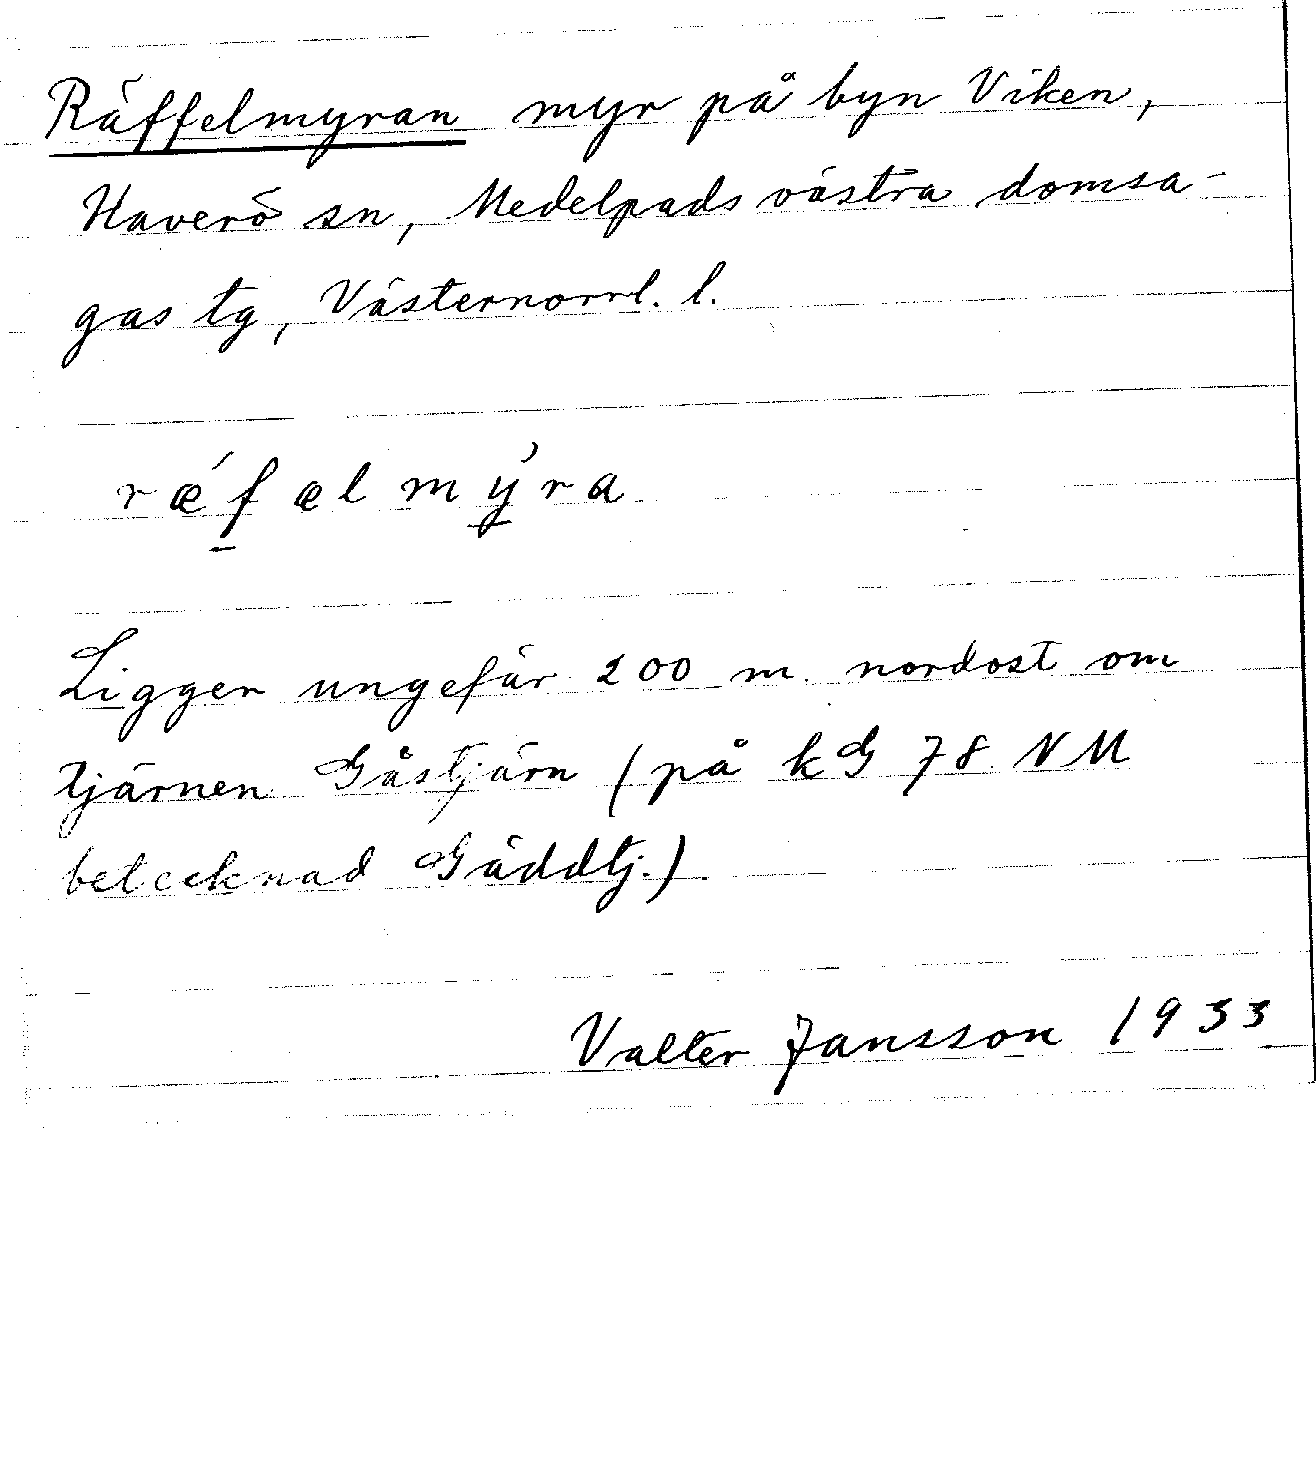 Räffelmyran myr på byn Viken,
Haverö sn, Medelpads västra domsa-
gas tg, Västernorrl. l.
ræ´fælmy`ra
Ligger ungefär 200 m. nordost om
tjärnen Gåstjärn (på kG 78 NM
betecknad Gäddtj.)
Valter Jansson 1933